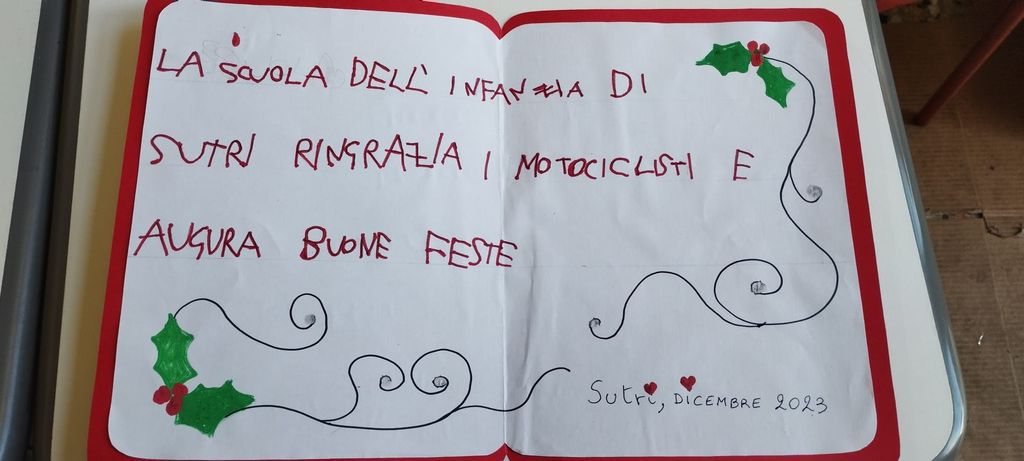 LA SCUOLA DELL' INFANZIA DI
SUTRI RINGRAZIA I MOTOCICLISTI E
AUGURA BUONE FESTE
Sutri, DICEMBRE 2023